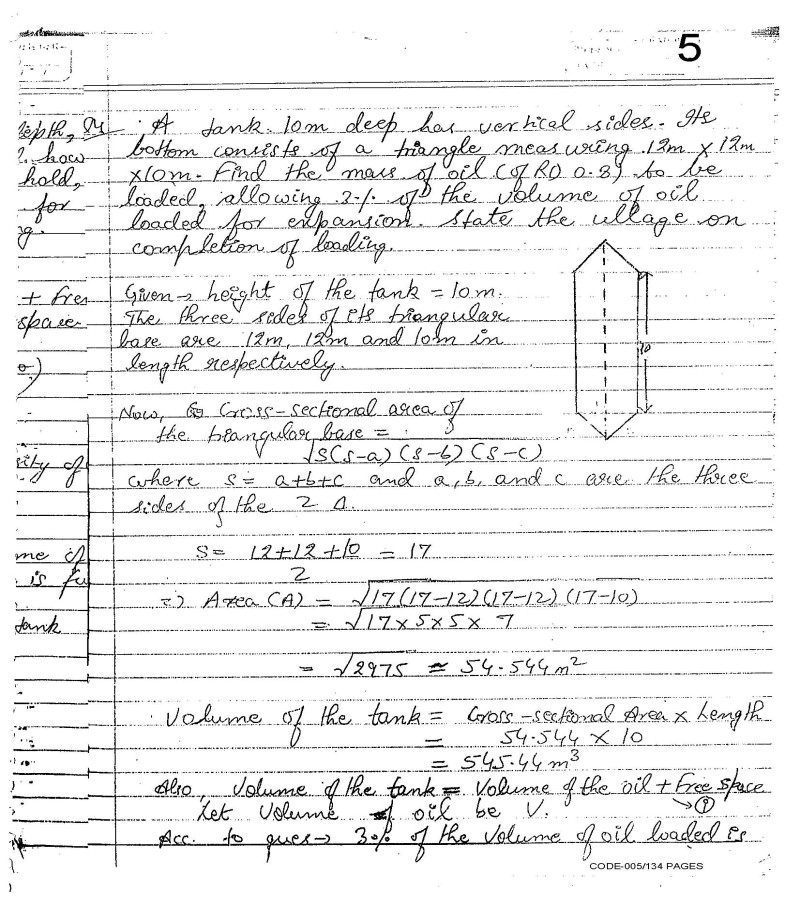 5
depth, 84 A tank 10m deep has vertical sides. Its
? how bottom consists of a triangle measuring 12m x 12m
hold, x10m. Find the mass of oil (of RD 0.8) to be
for loaded, allowing 3% of the volume of oil
loaded for expansion. State the ullage on
completion of loading.
+ free Given → height of the tank = 10m.
space The three sides of its triangular
base are 12m, 12m and 10m in
length respectively.
10
Now, Cross-sectional area of
the triangular base =
√S(S-a) (S-b) (S-c)
sity of where S = a+b+c and a, b, and c are the three
sides of the 2 Δ.
me of S = 12+12+10 = 17
is fu 2
=) Area (A) = √17(17-12)(17-12)(17-10)
tank = √17 x 5 x 5 x 7
= √2975 = 54.544 m²
Volume of the tank = Cross-sectional Area x Length
= 54.544 x 10
= 545.44 m³
Also, Volume of the tank = Volume of the oil + Free space
Let Volume of oil be V. → ①
Acc. to ques → 3% of the Volume of oil loaded is
CODE-005/134 PAGES